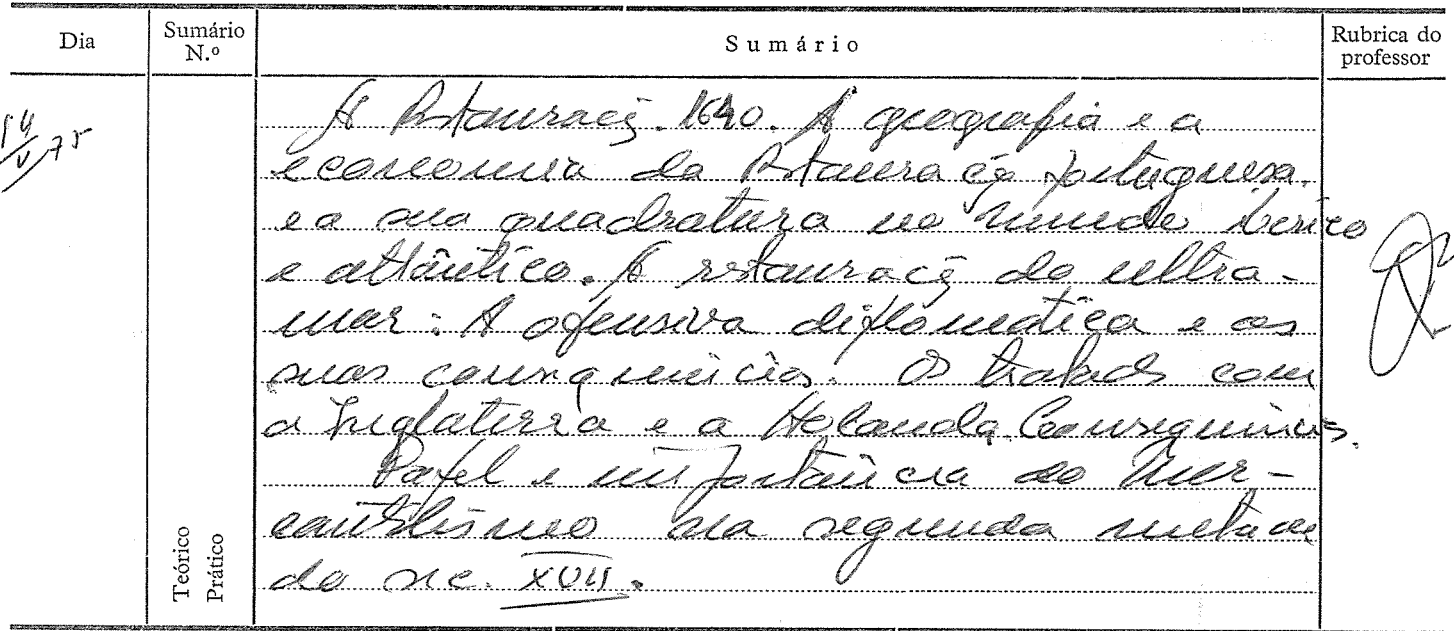 Dia
Sumário N.º
Sumário
Rubrica do professor
14/V/75
A Restauração. 1640. A geografia e a
economia da Restauração portuguesa.
e a sua quadratura no mundo ibérico
e atlântico. A restauração do ultra-
mar: A ofensiva diplomática e as
suas consequências. Os tratados com
a Inglaterra e a Holanda. Consequências.
Papel e importância do Mer-
cantilismo na segunda metade
do séc. XVII.
Teórico
Prático